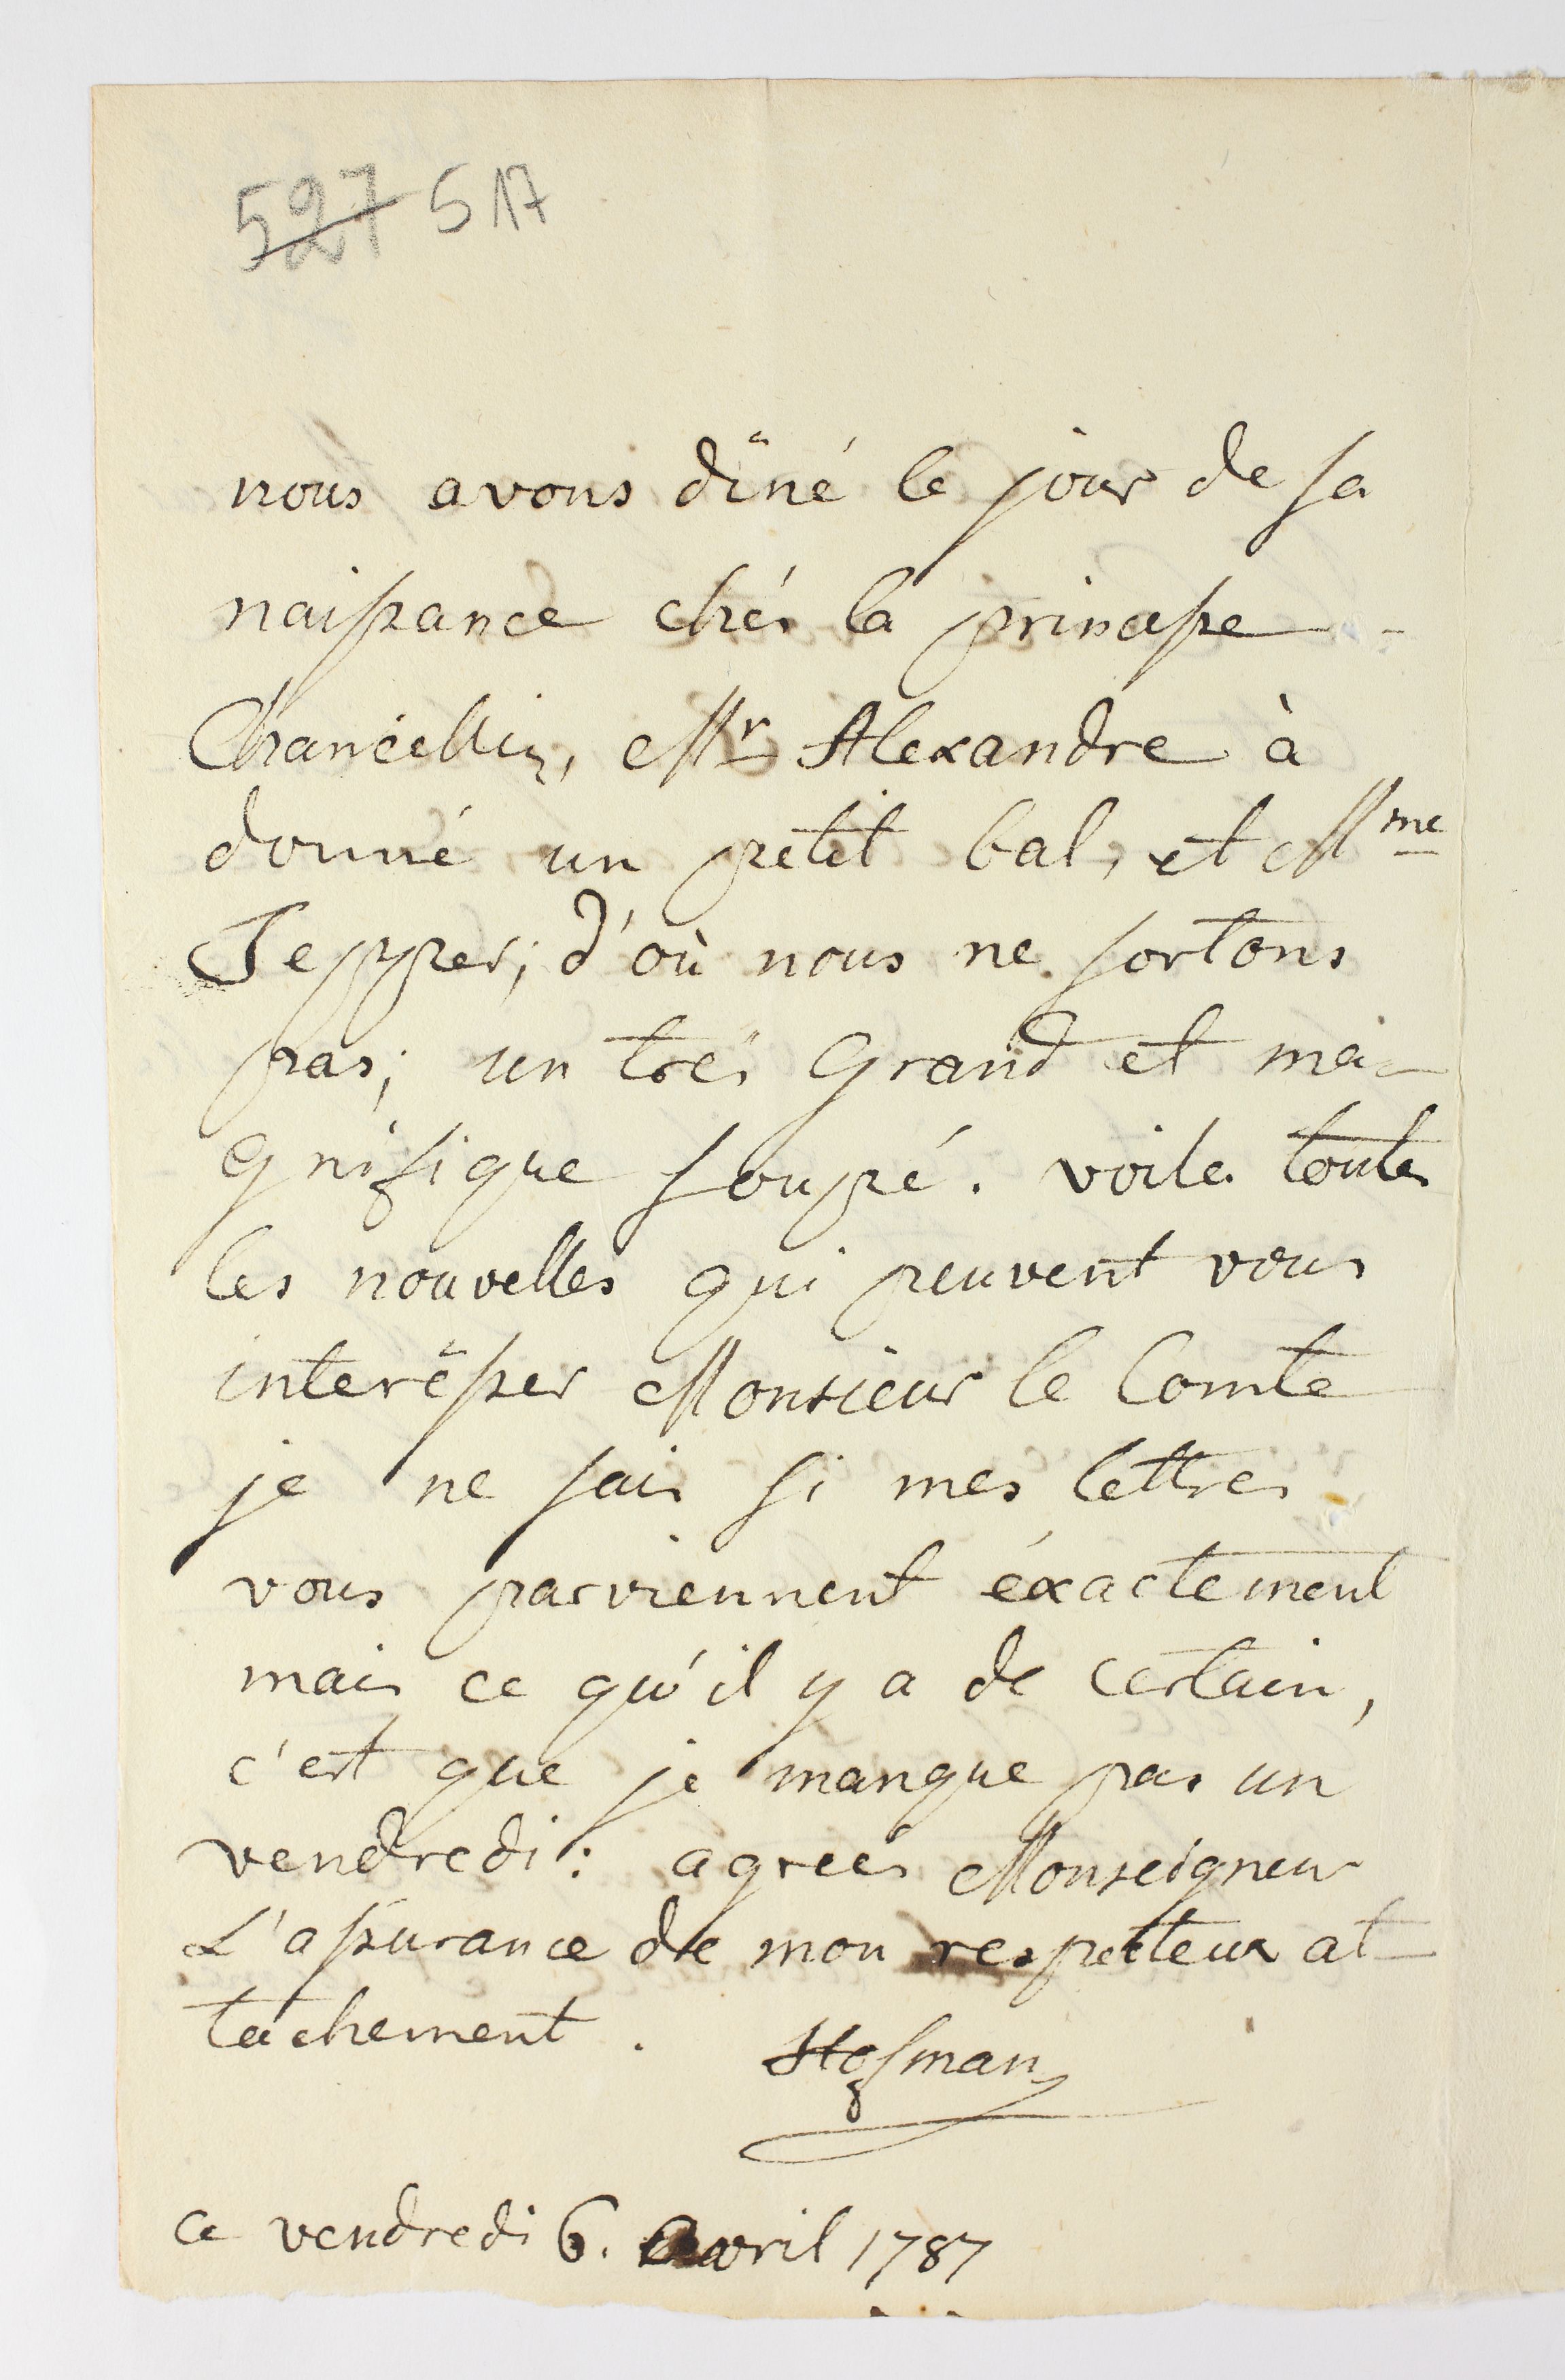 527 517
nous avons dîné le jour de sa
naissance chés la princesse
Chancellin, Mr Alexandre à
donné un petit bal, et Mme
Tepper; d'où nous ne sortons
pas; un trés grand et ma-
gnifique soupé. voila toutes
les nouvelles qui peuvent vous
interêsser Monsieur le Comte
je ne sais si mes lettres
vous parviennent éxactement
mais ce qu'il y a de certain,
c'est que je manque pas un
vendredi: agreés Monseigneur
L'assurance de mon respecteux at
tachement. Hofman
ce vendredi 6. avril 1787